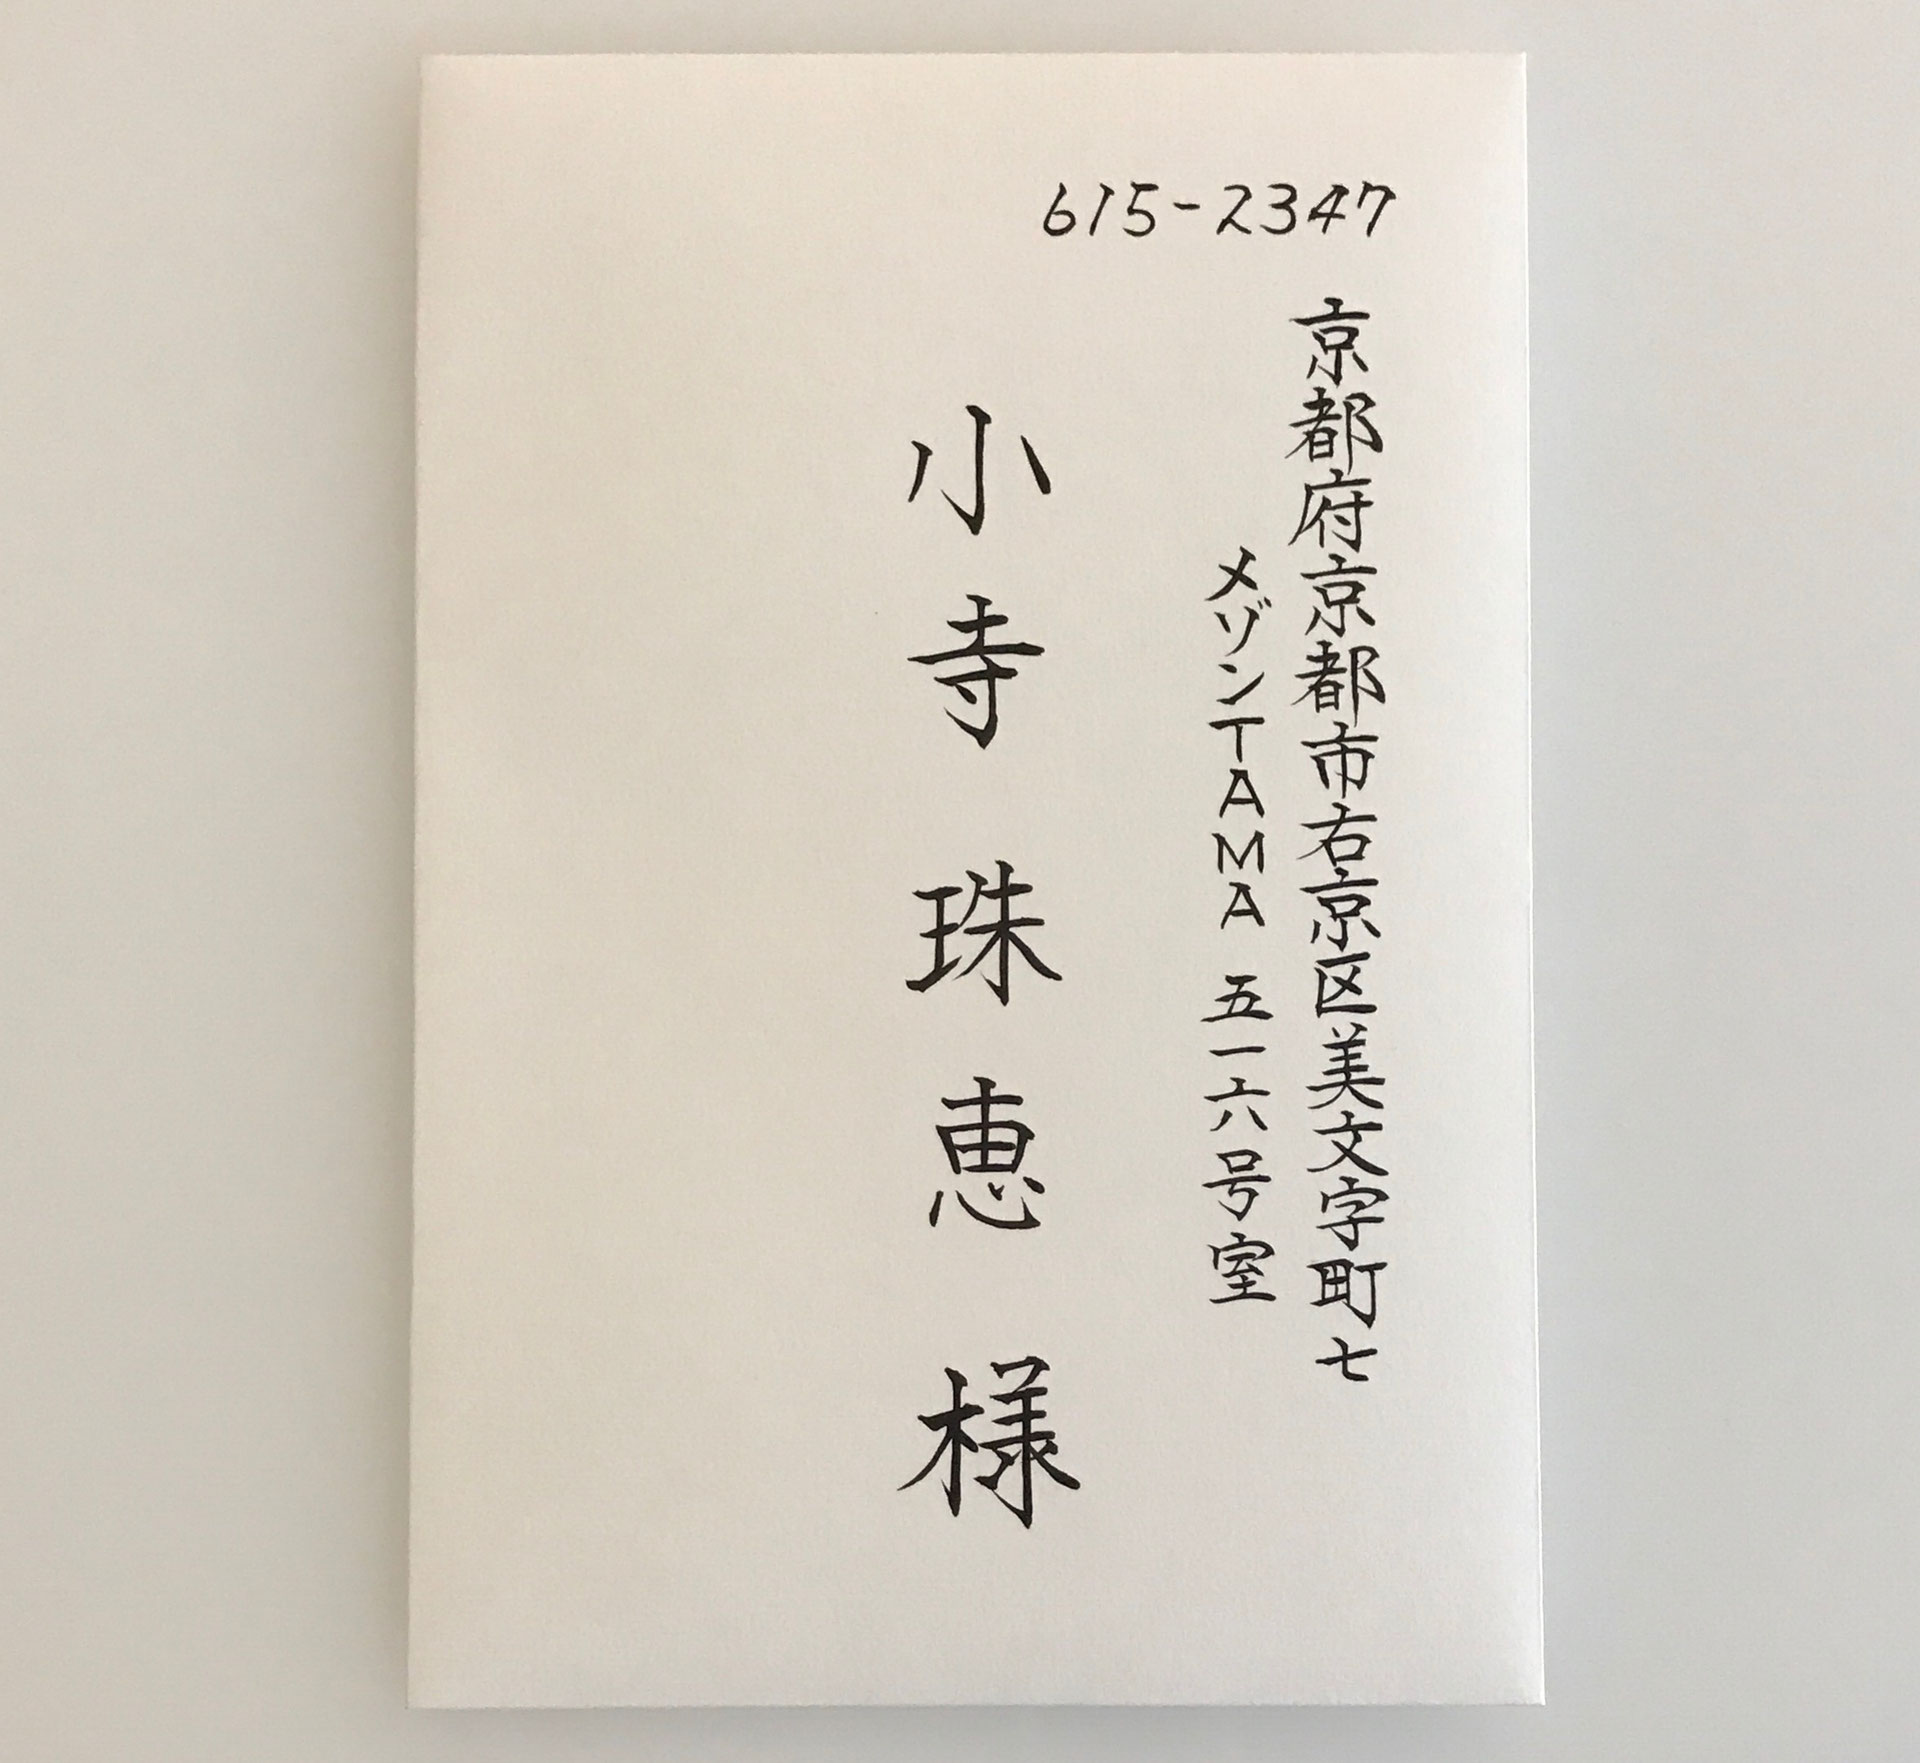 615-2347
京都府京都市右京区美文字町七
メゾンTAMA 五一六号室
小寺珠恵様